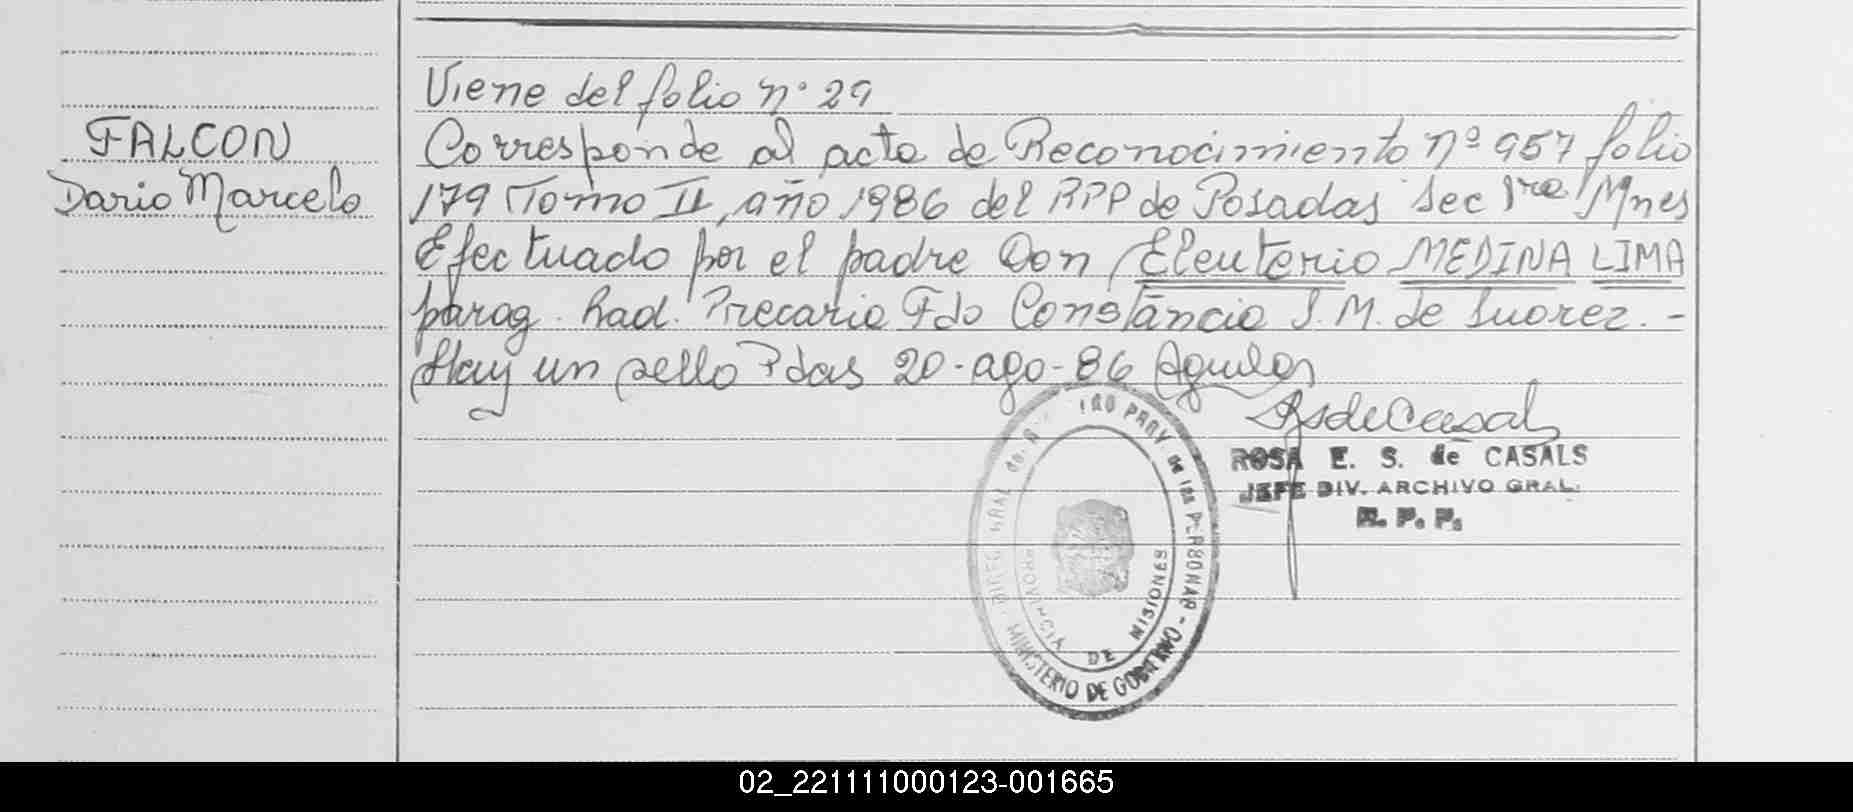 Viene del folio nº 29
FALCON
Dario Marcelo
Corresponde al acta de Reconocimiento nº 957 folio
179 Tomo II, año 1986 del RPP de Posadas Sec 1ra Mnes
Efectuado por el padre Don Eleuterio MEDINA LIMA
parag. Rad. Precaria Fdo Constancia S.M. de Suarez.-
Hay un sello Pdas 20-ago-86 Aguilar
ROSA E. S. de CASALS
JEFE DIV. ARCHIVO GRAL.
R. P. P.
PROVINCIA DE MISIONES
MINISTERIO DE GOBIERNO
02_221111000123-001665